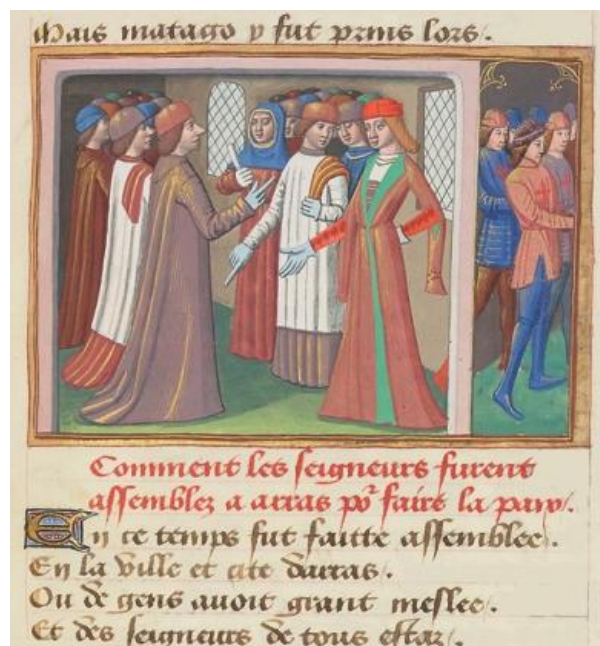 Mais matago y fut prins lors.
Comment les seigneurs furent
assemblez a arras po᷑ faire la paix.
En ce temps fut faitte assemblee.
En la ville et cite darras.
Ou de gens auoit grant meslee.
Et des seigneurs de tous estaz.